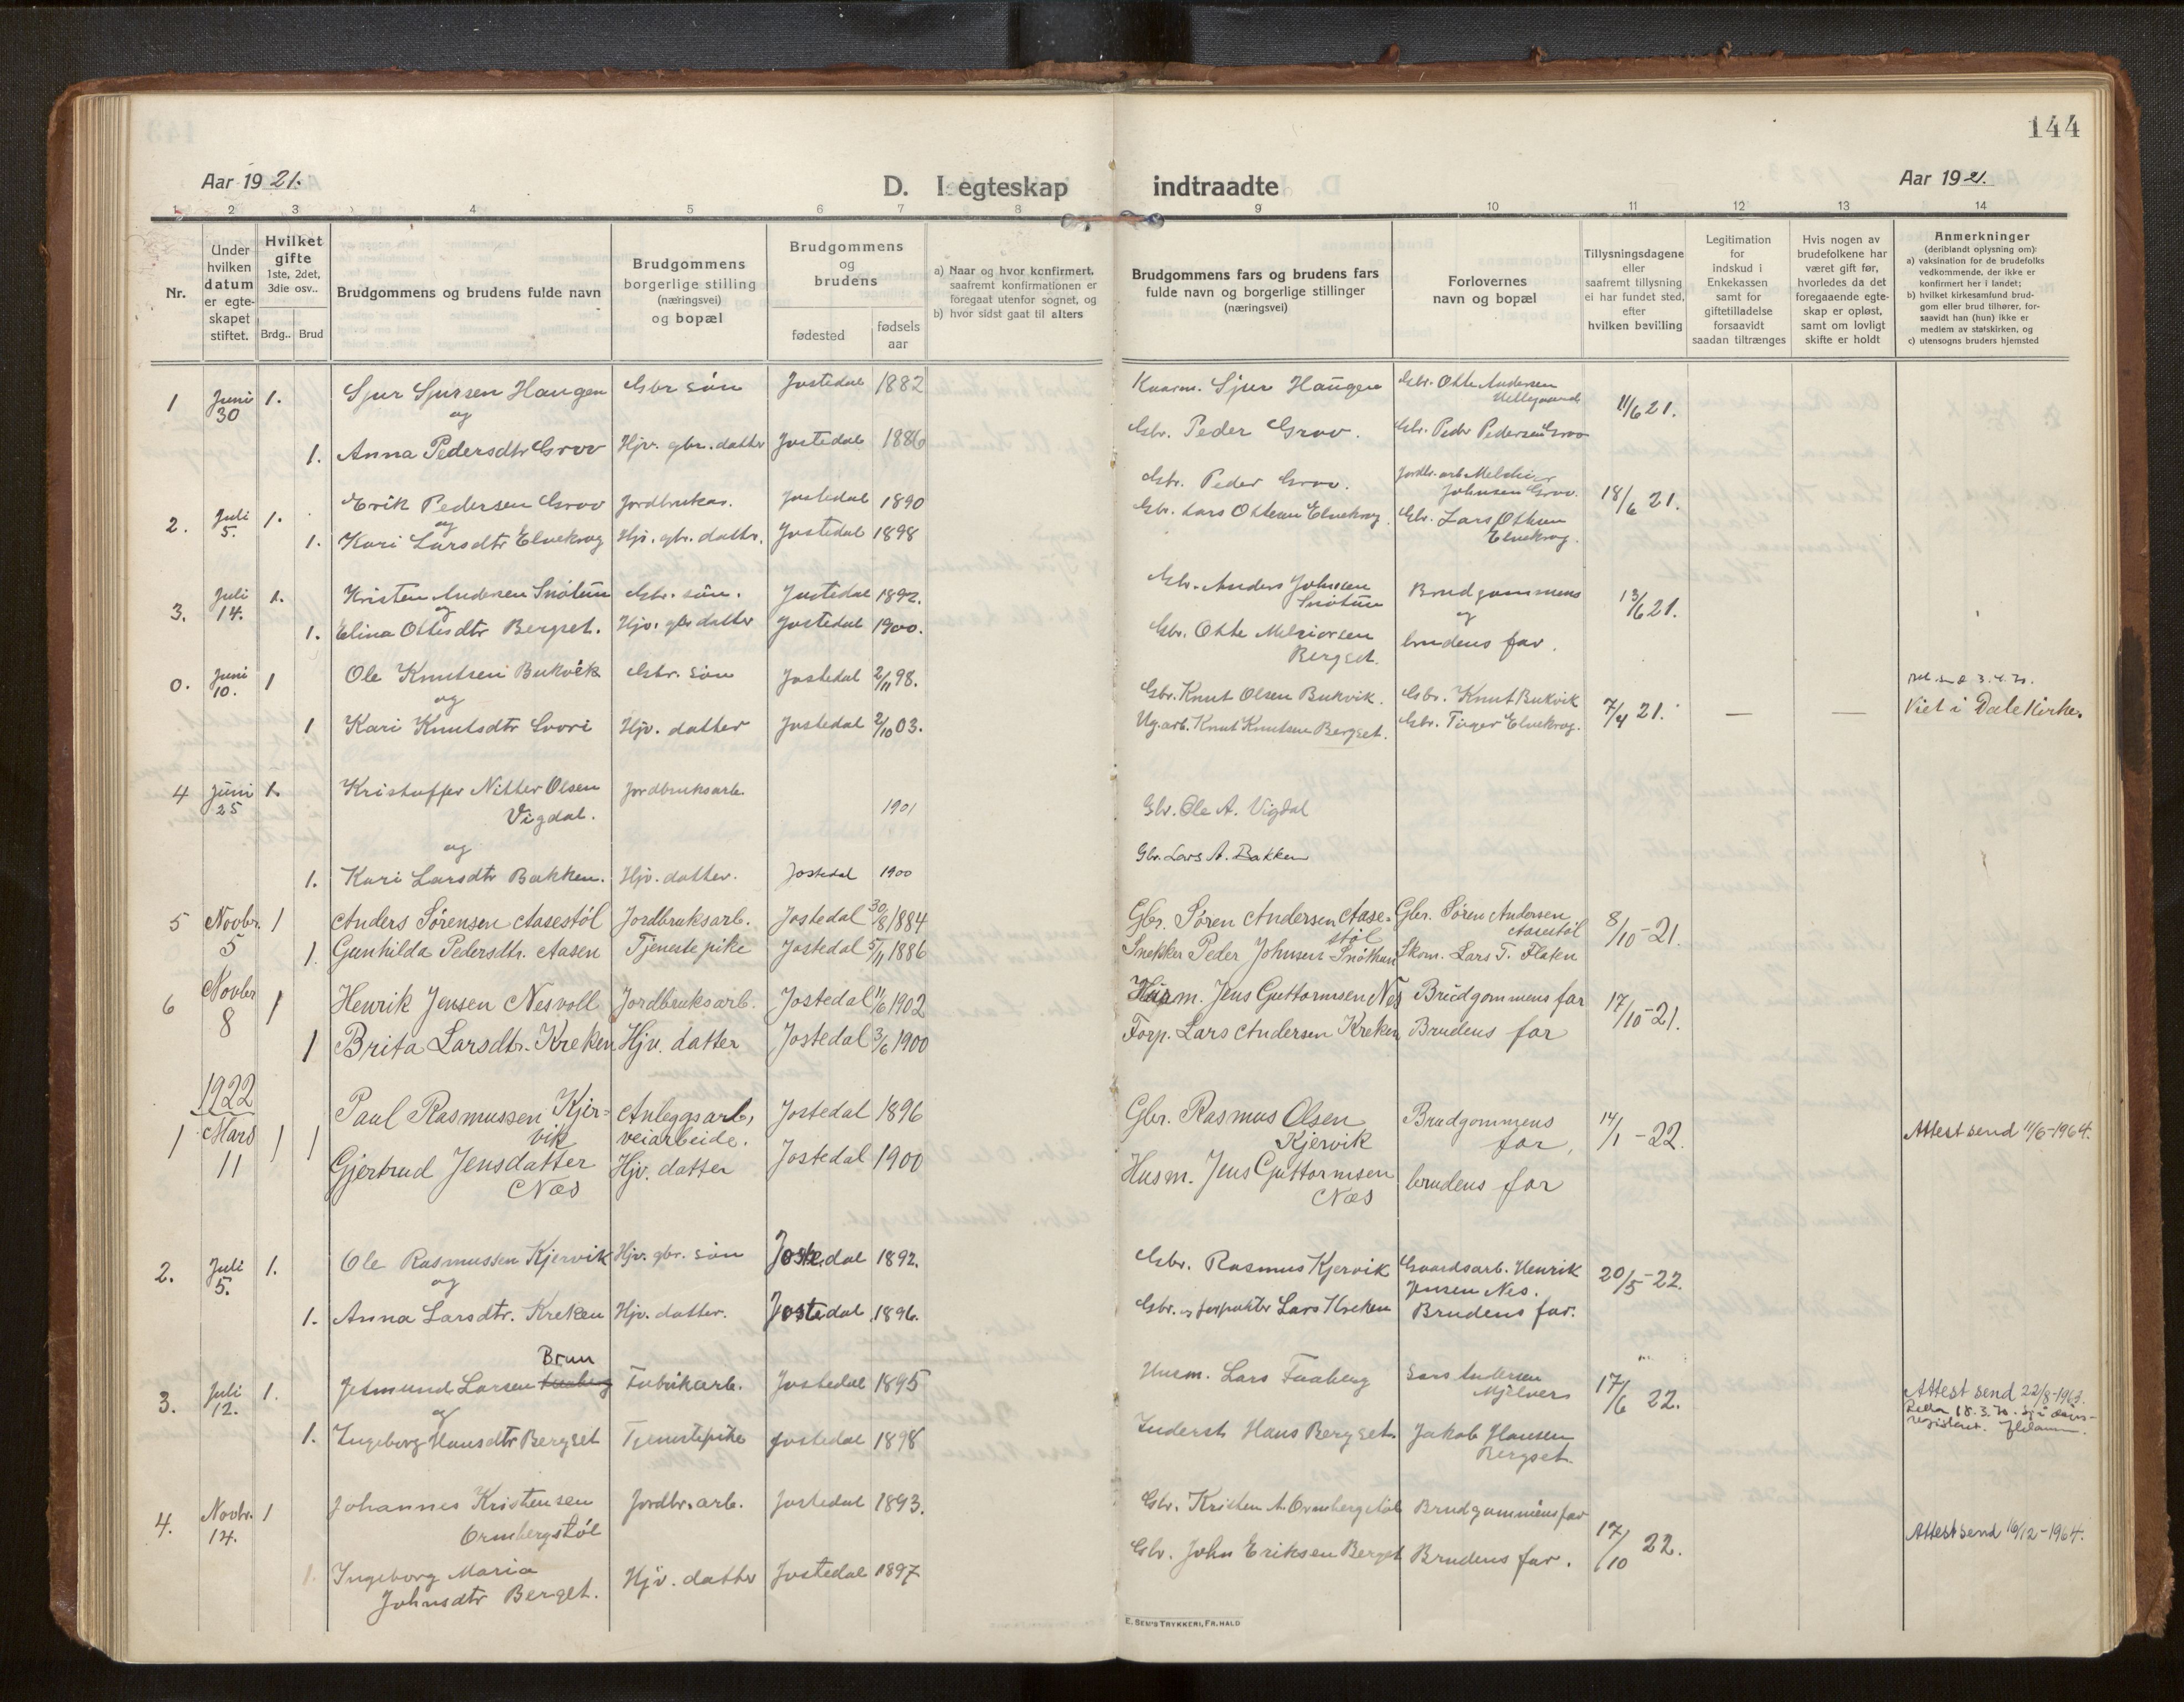 144
Aar 1921.
D. I egteskap indtraadte
Aar 1921.
1 2 3 4 5 6 7 8 9 10 11 12 13 14
Nr.
Under hvilken datum er egte-skapet stiftet.
Hvilket gifte
1ste, 2det, 3die osv..
Brdg.. Brud
Brudgommens og brudens fulde navn
Brudgommens borgerlige stilling (næringsvei) og bopæl
Brudgommens og brudens
fødested
fødsels aar
a) Naar og hvor konfirmert, saafremt konfirmationen er foregaat utenfor sognet, og
b) hvor sidst gaat til alters
Brudgommens fars og brudens fars fulde navn og borgerlige stillinger (næringsvei)
Forlovernes navn og bopæl
Tillysningsdagene eller saafremt tillysning ei har fundet sted, efter hvilken bevilling
Legitimation for indskud i Enkekassen samt for giftetilladelse forsaavidt saadan tiltrænges
Hvis nogen av brudefolkene har været gift før, hvorledes da det foregaaende egte-skap er opløst, samt om lovligt skifte er holdt
Anmerkninger
(deriblandt oplysning om):
a) vaksination for de brudefolks vedkommende, der ikke er konfirmert her i landet;
b) hvilket kirkesamfund brud-gom eller brud tilhører, for-saavidt han (hun) ikke er medlem av statskirken, og
c) utensogns bruders hjemsted
1 Juni 30 1. Sjur Sjursen Haugen Gbr søn Jostedal 1882 Kaarm. Sjur Haugen Gbr. Otte Andersen 11/6 21.
og
1. Anna Pedersdtr Grov Hjv. gbr. datter Jostedal 1886 Gbr. Peder Grov. Gbr. Peder Pedersen Grov
2. Juli 5. 1. Erik Pedersen Grov Jordbruksar. Jostedal 1890 Gbr. Peder Grov. Jordbr. arb Melchior Johnsen Grov. 18/6 21.
og
1. Kari Larsdtr Elvekrog Hjv. gbr. dattr. Jostedal 1898 Gbr. Lars Ottesen Elvekrog. Gbr. Lars Ottesen Elvekrog.
3. Juli 14. 1. Kristen Andersen Snøtun Gbr. søn. Jostedal 1892. Gbr. Anders Johnsen Snøtun Brudgommens 13/6 21.
og
1. Elina Ottesdtr Berget. Hjv. gbr datter Jostedal 1900. Gbr. Otte Melciorsen Bergset. og brudens far.
0. Juni 10. 1 Ole Knutsen Bukvik Gbr. søn Jostedal 2/11 98. Gbr. Knut Olsen Bukvik. Gbr. Knut Bukvik 7/4 21. — — Viet i Dale Kirke.
og
1 Kari Knutsdtr Svori Hjv. datter Jostedal 2/10 03. Ug. arb. Knut Knutsen Bergset. Gbr. Tøger Elvekrog.
4 Juni 25 1. Kristoffer Nitter Olsen Vigdal. Jordbruksarb. 1901 Gbr. Ole A. Vigdal
og
1. Kari Larsdtr Bakken. Hjv. datter. Jostedal 1900 Gbr. Lars A. Bakken
5 Novbr. 5 1 Anders Sørensen Aasestøl Jordbruksarb. Jostedal 30/8 1884 Gbr. Søren Andersen Aase-støl Gbr. Søren Andersen Aasestøl 8/10-21.
1. Gunhilda Pedersdtr. Aasen Tjenestepike Jostedal 5/11 1886 Snekker Peder Johnsen Snøthun Skom. Lars T. Flaten
6 Novbr 8 1 Henrik Jensen Nesvoll Jordbruksarb. Jostedal 11/6 1902 Husm. Jens Guttormsen Nes Brudgommens far 17/10-21.
1 Brita Larsdtr. Kreken Hjv. datter Jostedal 3/6 1900 Forp. Lars Andersen Kreken Brudens far
1922
1 Mars 11 1 1 Paul Rasmussen Kjer-vik Anleggsarb, veiarbeide. Jostedal 1896 Gbr. Rasmus Olsen Kjervik Brudgommens far, 14/1-22. Attest send 11/6-1964.
Gjertrud Jensdatter Næs Hjv. datter Jostedal 1900 Husm. Jens Guttormsen Næs brudens far
2. Juli 5. 1. Ole Rasmussen Kjervik Hjv. gbr. søn Jostedal 1892. Gbr. Rasmus Kjervik Gaardsarb. Henrik Jensen Nes. 20/5-22.
og
1. Anna Larsdtr. Kreken Hjv. datter. Jostedal 1896. Gbr. og forpakter Lars Kreken Brudens far.
3. Juli 12. 1. Jetmund Larsen Faaberg Brun Fabrikarb. Jostedal 1895 Husm. Lars Faaberg Lars Andersen Mjelvers 17/6 22. Attest send 22/8-1963.
og
1. Ingeborg Hansdtr Bergset Tjenestepike Jostedal 1898 Inderst Hans Bergset. Jakob Hansen Bergset.
4. Novbr. 14. 1 Johannes Kristensen Ormbergstøl Jordbr. arb. Jostedal 1893. Gbr. Kristen A. Ormbergstøl Brudgommens far 17/10 22. Attest send 16/12-1964.
1. Ingeborg Maria Johnsdtr Berget. Hjv. datter Jostedal 1897 Gbr. John Eriksen Berget Brudens far.
E. SEM'S TRYKKERI, FR.HALD